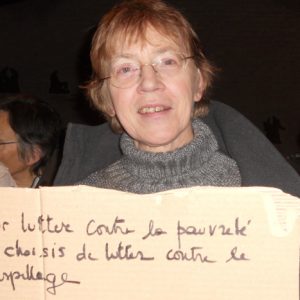 lutter contre la pauvreté
choisis de lutter contre le